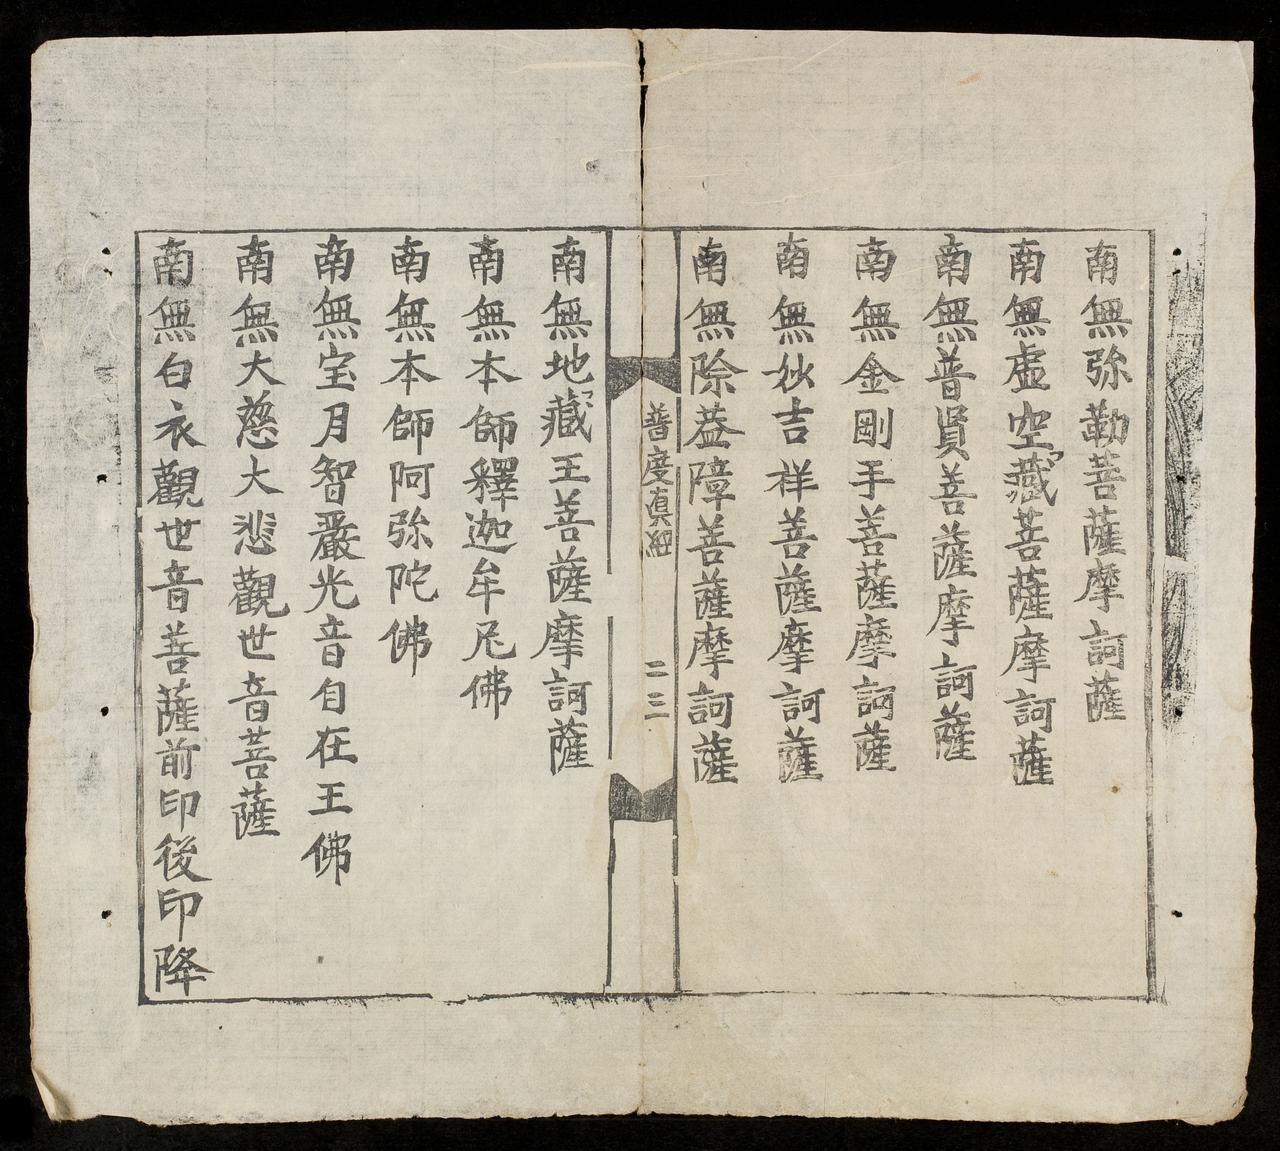 南無弥勒菩薩摩訶薩
南無虛空藏菩薩摩訶薩
南無普賢菩薩摩訶薩
南無金剛手菩薩摩訶薩
南無妙吉祥菩薩摩訶薩
南無除葢障菩薩摩訶薩
普度真經
二三
南無地藏王菩薩摩訶薩
南無本師釋迦牟尼佛
南無本師阿弥陀佛
南無宝月智嚴光音自在王佛
南無大慈大悲觀世音菩薩
南無白衣觀世音菩薩前印後印降